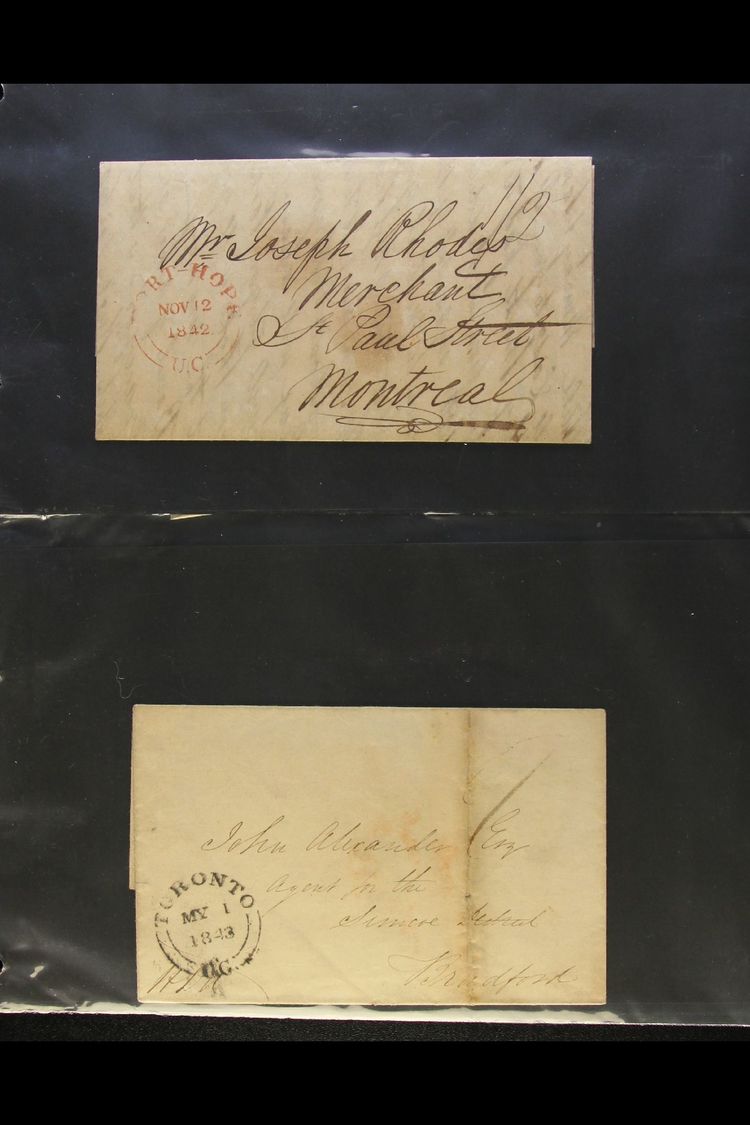 11 1/2
Mr Joseph Rhodes
Merchant
St Paul Street
Montreal
PORT-HOPE
NOV 12
1842
U.C.
John Alexander Esq
Agent for the
Simcoe District
Bradford
TORONTO
MY 1
1843
U.C.